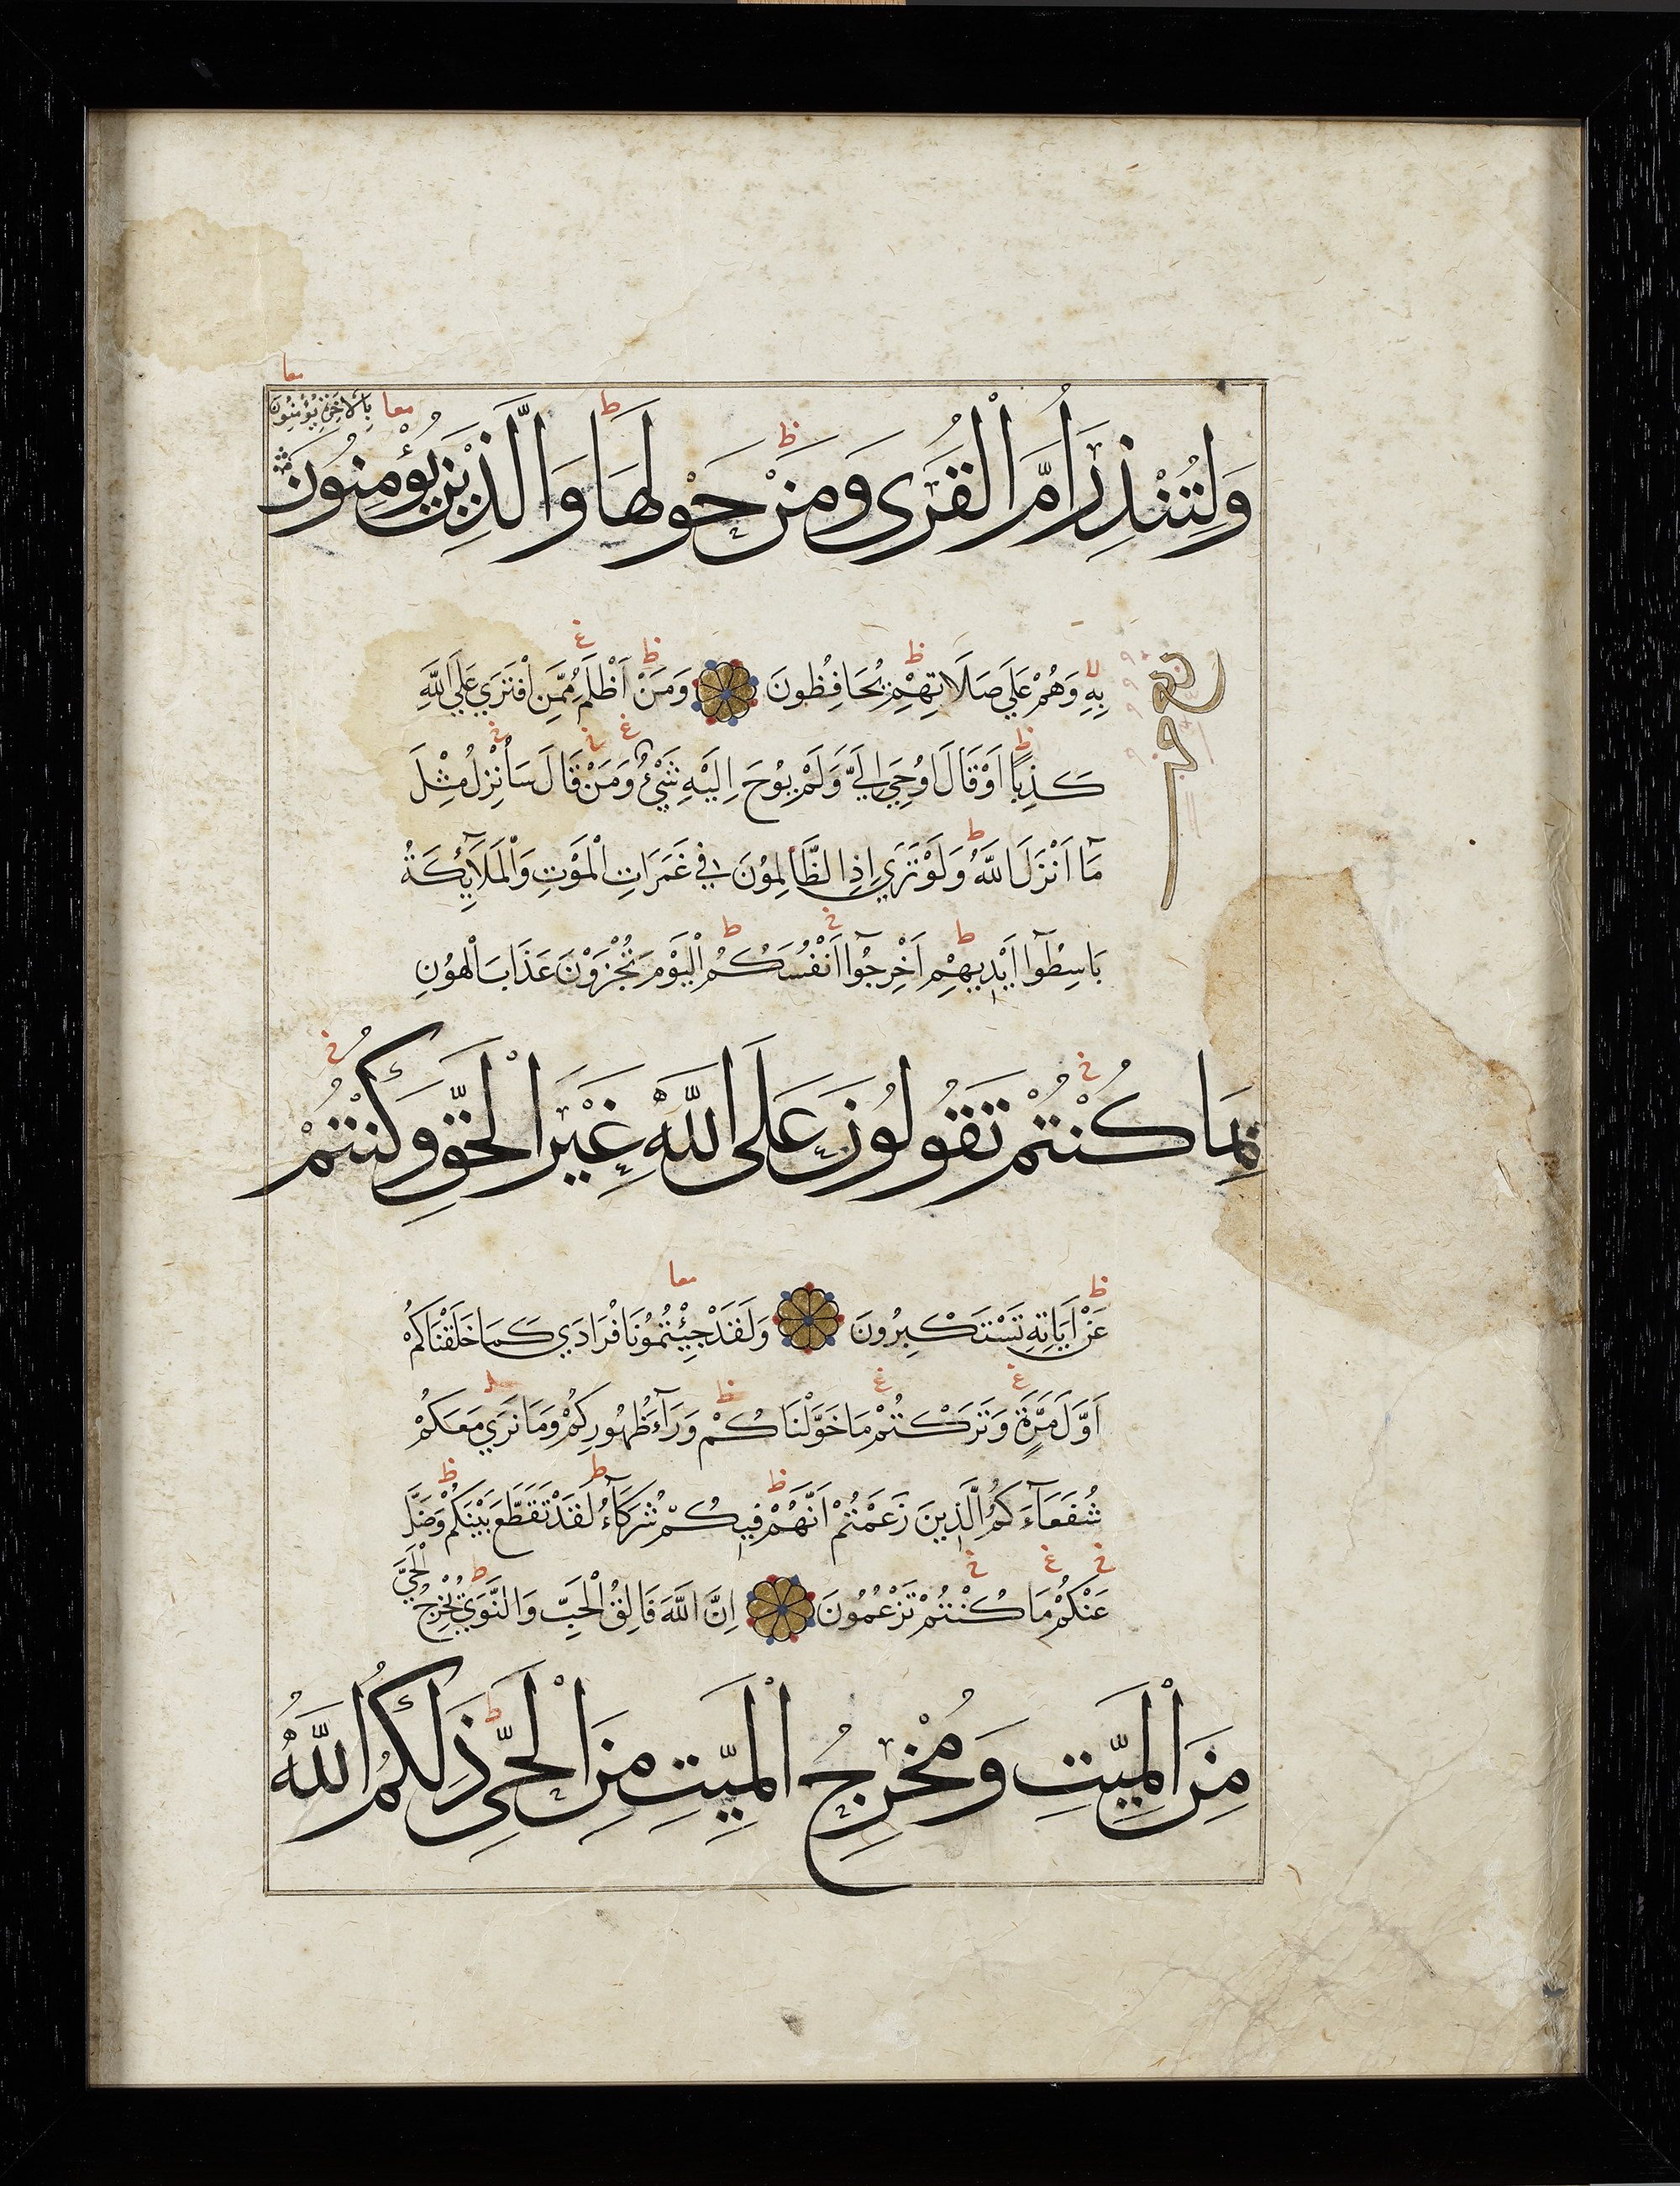 معا
بِالْاٰخِرَةِ يُؤْمِنُونَ معا
وَلِتُنْذِرَ أُمَّ الْقُرَى وَمَنْ حَوْلَهَا وَالَّذِينَ يُؤْمِنُونَ
بِهِ وَهُمْ عَلَي صَلَاتِهِمْ يُحَافِظُونَ وَمَنْ اَظْلَمُ مِمَّنِ افْتَرَي عَلَي اللَّهِ
كَذِبًا اَوْ قَالَ اُوحِيَ اِلَيَّ وَلَمْ يُوحَ اِلَيْهِ شَيْءٌ وَمَنْ قَالَ سَاُنْزِلُ مِثْلَ
مَآ اَنْزَلَ اللَّهُ وَلَوْ تَرَي اِذِ الظَّالِمُونَ فِي غَمَرَاتِ الْمَوْتِ وَالْمَلَآئِكَةُ
بَاسِطُوٓا اَيْدِيهِمْ اَخْرِجُوٓا اَنْفُسَكُمُ الْيَوْمَ تُجْزَوْنَ عَذَابَ الْهُونِ
بِمَا كُنْتُمْ تَقُولُونَ عَلَى اللَّهِ غَيْرَ الْحَقِّ وَكُنْتُمْ
معا
عَنْ اٰيَاتِهِ تَسْتَكْبِرُونَ وَلَقَدْ جِئْتُمُونَا فُرَادَي كَمَا خَلَقْنَاكُمْ
اَوَّلَ مَرَّةٍ وَتَرَكْتُمْ مَا خَوَّلْنَاكُمْ وَرَآءَ ظُهُورِكُمْ وَمَا نَرَي مَعَكُمْ
شُفَعَآءَكُمُ الَّذِينَ زَعَمْتُمْ اَنَّهُمْ فِيكُمْ شُرَكَآءُ لَقَدْ تَقَطَّعَ بَيْنَكُمْ وَضَلَّ
عَنْكُمْ مَا كُنْتُمْ تَزْعُمُونَ اِنَّ اللَّهَ فَالِقُ الْحَبِّ وَالنَّوَي يُخْرِجُ الْحَيَّ
مِنَ الْمَيِّتِ وَمُخْرِجُ الْمَيِّتِ مِنَ الْحَيِّ ذَلِكُمُ اللَّهُ